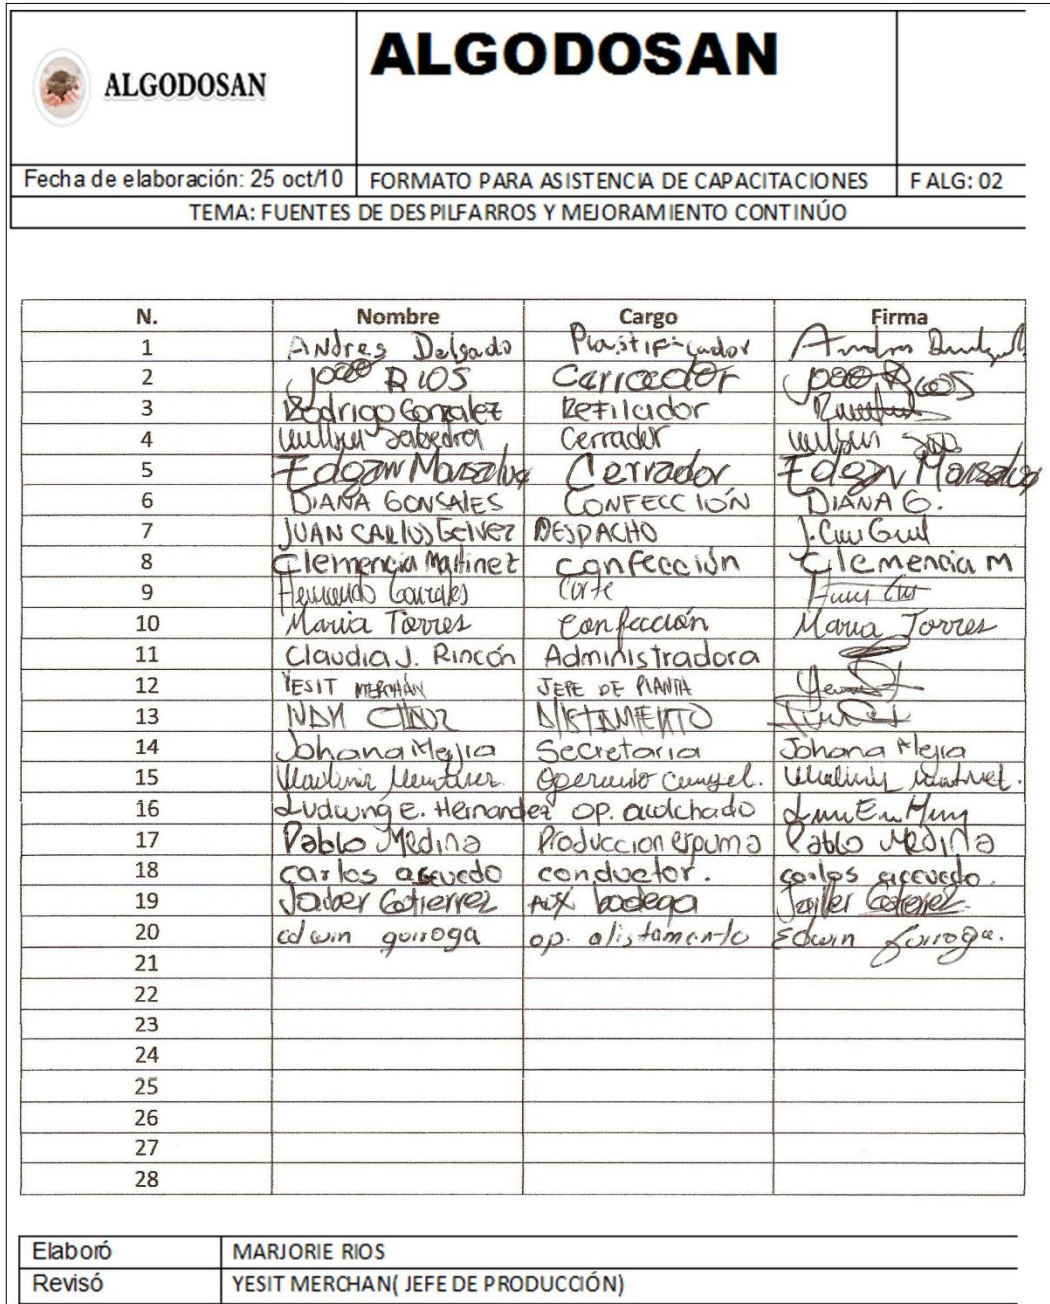 ALGODOSAN
ALGODOSAN
Fecha de elaboración: 25 oct/10 FORMATO PARA ASISTENCIA DE CAPACITACIONES F ALG: 02
TEMA: FUENTES DE DESPILFARROS Y MEJORAMIENTO CONTINÚO
N. Nombre Cargo Firma
1 Andres Delgado Plastificador
2 Rios Rios
3 Rodrigo Gonzalez Refilador
4 Cerrador
5 Edgar Cerrador Edgar
6 DIANA GONSALES CONFECCIÓN DIANA G.
7 JUAN CARLOS GELVEZ DESPACHO
8 Clemencia Martinez confección Clemencia M
9 Corte
10 Maria Torres Confección Maria Torres
11 Claudia J. Rincón Administradora
12 YESIT MERCHÁN JEFE DE PLANTA
13
14 Johana Mejia Secretaria Johana Mejia
15
16 Ludwing E. Hernandez OP. acolchado
17 Pablo Medina Produccion espuma Pablo Medina
18 carlos acevedo conductor. carlos acevedo.
19 Jaiber Gotierrez AUX bodega Gotierrez
20 edwin quiroga op. alistamento Edwin
21
22
23
24
25
26
27
28
Elaboró MARJORIE RIOS
Revisó YESIT MERCHAN( JEFE DE PRODUCCIÓN)